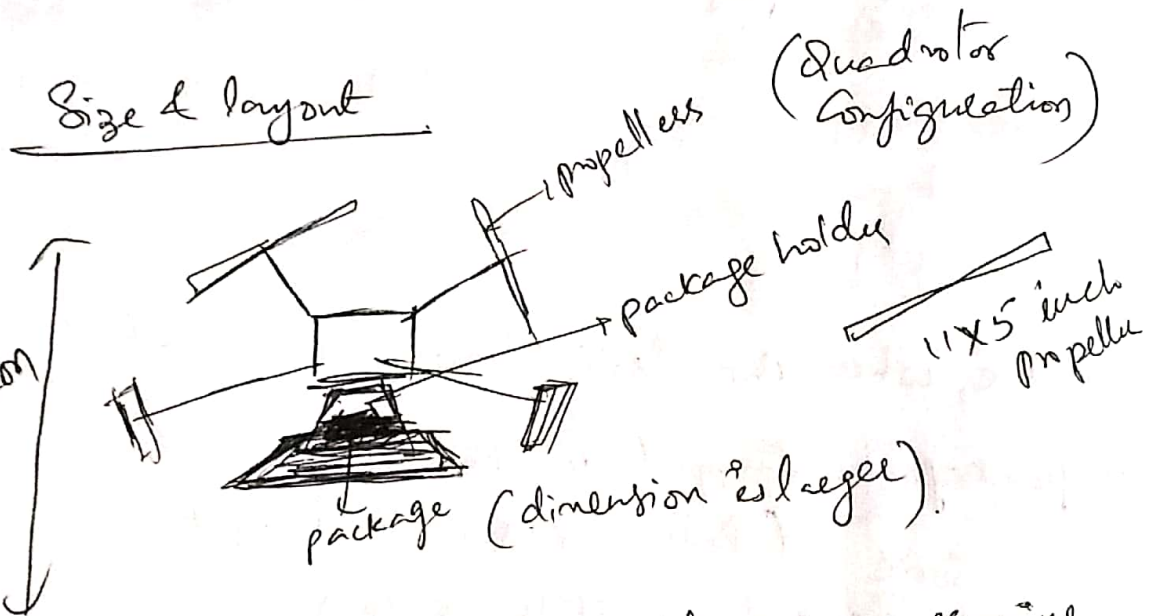 Size & layout
(Quadrotor
Configuration)
propellers
package holder
11X5 inch
propeller
package (dimension is larger).